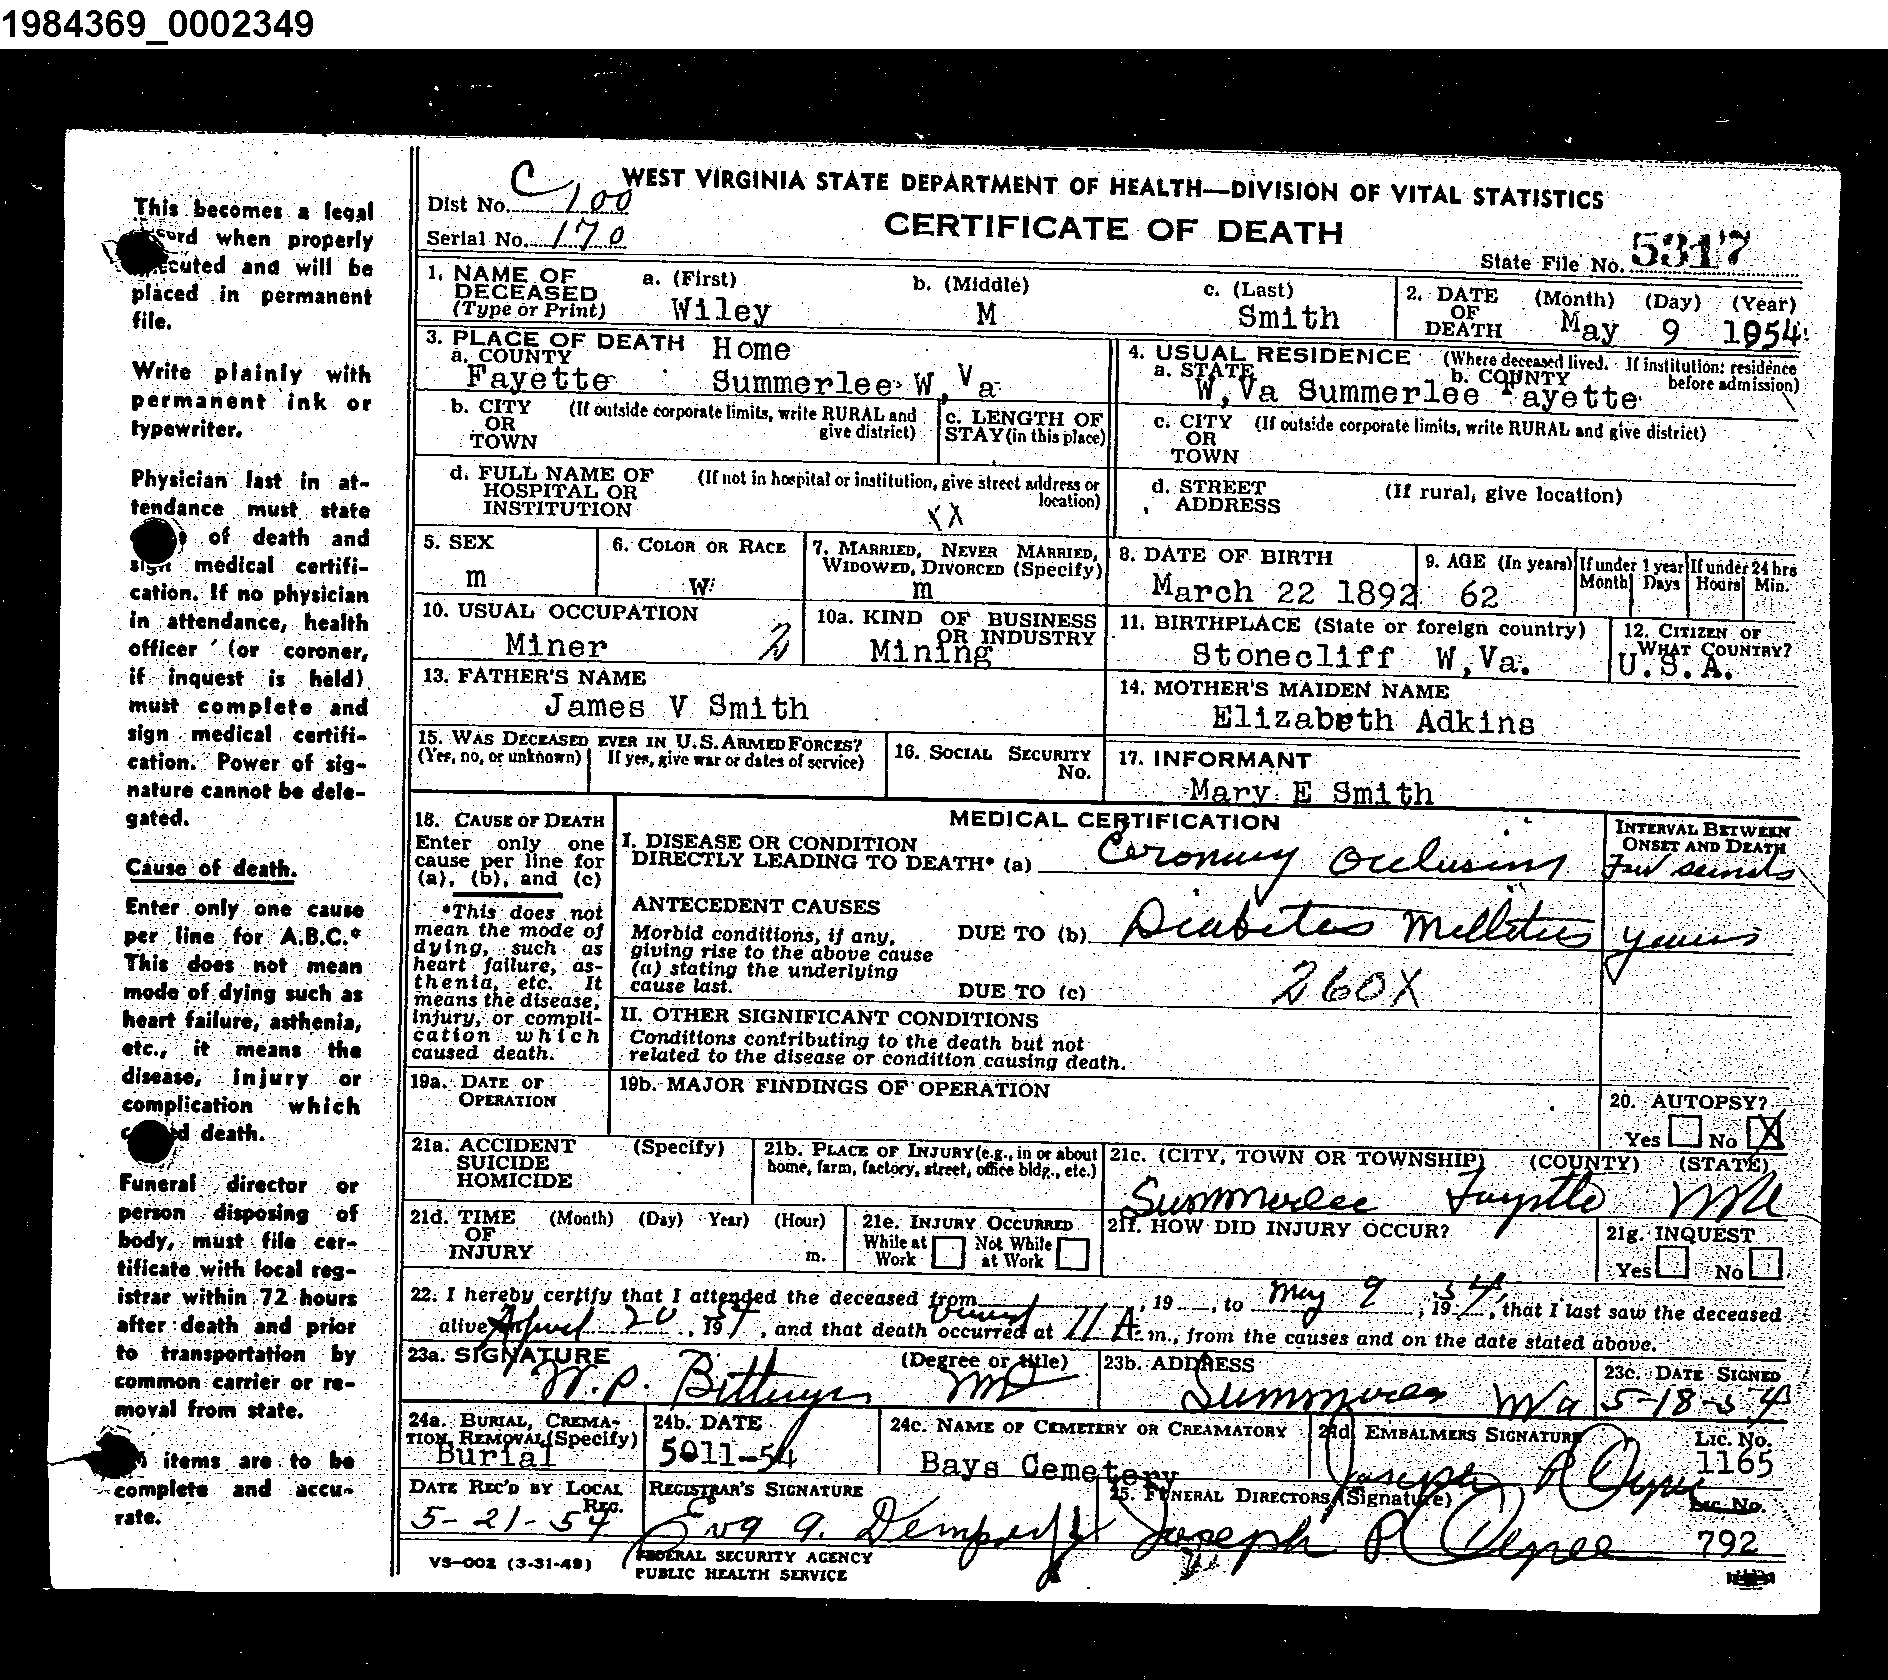 1984369_0002349
This becomes a legal
record when properly
executed and will be
placed in permanent
file.
Write plainly with
permanent ink or
typewriter.
Physician last in at-
tendance must state
of death and
sign medical certifi-
cation. If no physician
in attendance, health
officer (or coroner,
if inquest is held)
must complete and
sign medical certifi-
cation. Power of sig-
nature cannot be dele-
gated.
Cause of death.
Enter only one cause
per line for A.B.C.*
This does not mean
mode of dying such as
heart failure, asthenia,
etc., it means the
disease, injury or
complication which
death.
Funeral director or
person disposing of
body, must file cer-
tificate with local reg-
istrar within 72 hours
after death and prior
to transportation by
common carrier or re-
moval from state.
items are to be
complete and accu-
rate.
WEST VIRGINIA STATE DEPARTMENT OF HEALTH—DIVISION OF VITAL STATISTICS
Dist No. C 100
CERTIFICATE OF DEATH
Serial No. 170
State File No. 5317
1. NAME OF DECEASED (Type or Print) a. (First) b. (Middle) c. (Last)
Wiley M Smith
2. DATE OF DEATH (Month) (Day) (Year)
May 9 1954
3. PLACE OF DEATH Home
a. COUNTY
Fayette Summerlee W,Va
4. USUAL RESIDENCE (Where deceased lived. If institution: residence before admission)
a. STATE b. COUNTY
W,Va Summerlee Fayette
b. CITY OR TOWN (If outside corporate limits, write RURAL and give district)
c. LENGTH OF STAY (in this place)
c. CITY OR TOWN (If outside corporate limits, write RURAL and give district)
d. FULL NAME OF HOSPITAL OR INSTITUTION (If not in hospital or institution, give street address or location)
XX
d. STREET ADDRESS (If rural, give location)
5. SEX
m
6. COLOR OR RACE
W
7. MARRIED, NEVER MARRIED, WIDOWED, DIVORCED (Specify)
m
8. DATE OF BIRTH
March 22 1892
9. AGE (In years)
62
If under 1 year Month Days
If under 24 hrs Hours Min.
10. USUAL OCCUPATION
Miner 2
10a. KIND OF BUSINESS OR INDUSTRY
Mining
11. BIRTHPLACE (State or foreign country)
Stonecliff W,Va.
12. CITIZEN OF WHAT COUNTRY?
U.S.A.
13. FATHER'S NAME
James V Smith
14. MOTHER'S MAIDEN NAME
Elizabeth Adkins
15. WAS DECEASED EVER IN U.S. ARMED FORCES?
(Yes, no, or unknown) If yes, give war or dates of service)
16. SOCIAL SECURITY No.
17. INFORMANT
Mary E Smith
18. CAUSE OF DEATH
Enter only one
cause per line for
(a), (b), and (c)
*This does not
mean the mode of
dying, such as
heart failure, as-
thenia, etc. It
means the disease,
injury, or compli-
cation which
caused death.
MEDICAL CERTIFICATION
I. DISEASE OR CONDITION
DIRECTLY LEADING TO DEATH* (a) Coronary Occlusion
INTERVAL BETWEEN ONSET AND DEATH
Few seconds
ANTECEDENT CAUSES
Morbid conditions, if any,
giving rise to the above cause
(a) stating the underlying
cause last.
DUE TO (b) Diabetes Mellitus years
DUE TO (c) 260X
II. OTHER SIGNIFICANT CONDITIONS
Conditions contributing to the death but not
related to the disease or condition causing death.
19a. DATE OF OPERATION
19b. MAJOR FINDINGS OF OPERATION
20. AUTOPSY?
Yes No X
21a. ACCIDENT SUICIDE HOMICIDE (Specify)
21b. PLACE OF INJURY (e.g., in or about home, farm, factory, street, office bldg., etc.)
21c. (CITY, TOWN OR TOWNSHIP) (COUNTY) (STATE)
Summerlee Fayette WVa
21d. TIME OF INJURY (Month) (Day) Year) (Hour) m.
21e. INJURY OCCURRED
While at Work Not While at Work
21f. HOW DID INJURY OCCUR?
21g. INQUEST
Yes No
22. I hereby certify that I attended the deceased from , 19 , to May 9 , 1954, that I last saw the deceased
alive April 20, 1954, and that death occurred at 11 A. m., from the causes and on the date stated above.
23a. SIGNATURE (Degree or title)
W. P. Bittinger MD
23b. ADDRESS
Summerlee WVa
23c. DATE SIGNED
5-18-54
24a. BURIAL, CREMATION, REMOVAL (Specify)
Burial
24b. DATE
5011-54
24c. NAME OF CEMETERY OR CREAMATORY
Bays Cemetery
24d. EMBALMERS SIGNATURE Lic. No.
Joseph P 1165
DATE REC'D BY LOCAL REG.
5-21-54
REGISTRAR'S SIGNATURE
Eva A. Dempsey
25. FUNERAL DIRECTORS (Signature) Lic. No.
Joseph P 792
VS-002 (3-31-49)
FEDERAL SECURITY AGENCY
PUBLIC HEALTH SERVICE